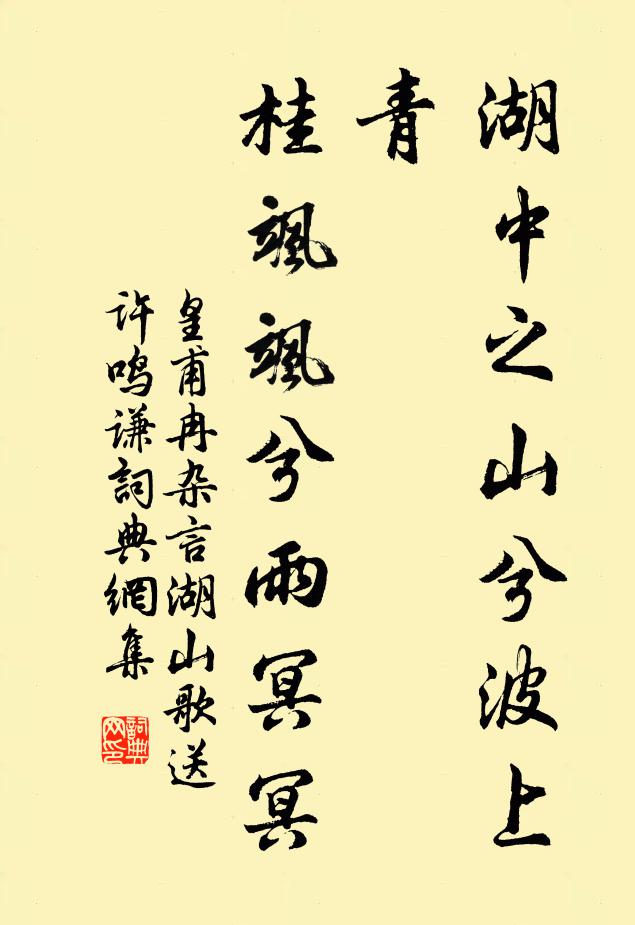 湖中之山兮波上
青
桂颯颯兮雨冥冥
皇甫冉杂言湖山歌送
许鸣谦詞典網集
詞典网印